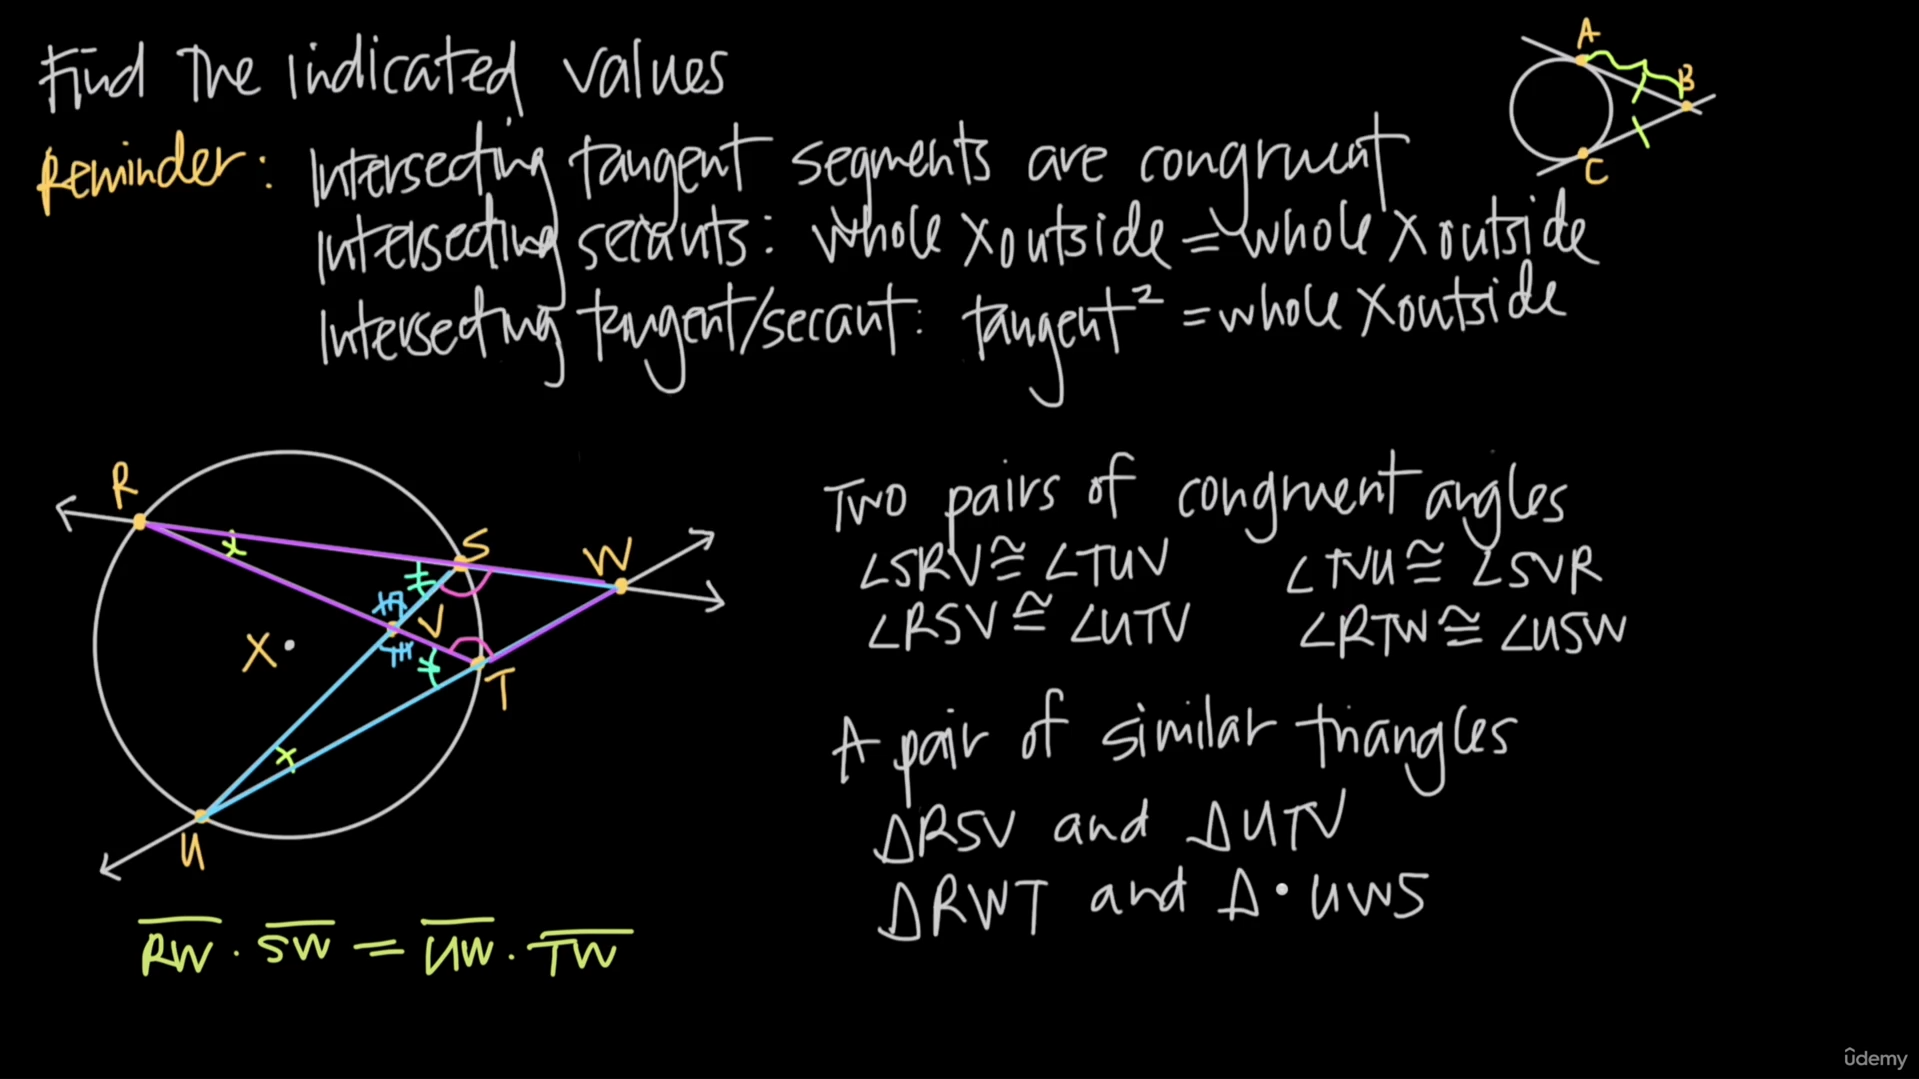 Find the indicated values
Reminder: Intersecting tangent segments are congruent
Intersecting secants: whole x outside = whole x outside
Intersecting tangent/secant: tangent² = whole x outside
A
B
C
R
S
W
V
X
T
U
Two pairs of congruent angles
∠SRV ≅ ∠TUV ∠TVU ≅ ∠SVR
∠RSV ≅ ∠UTV ∠RTW ≅ ∠USW
A pair of similar triangles
△RSV and △UTV
△RWT and △UWS
R̅W̅ · S̅W̅ = U̅W̅ · T̅W̅
ûdemy